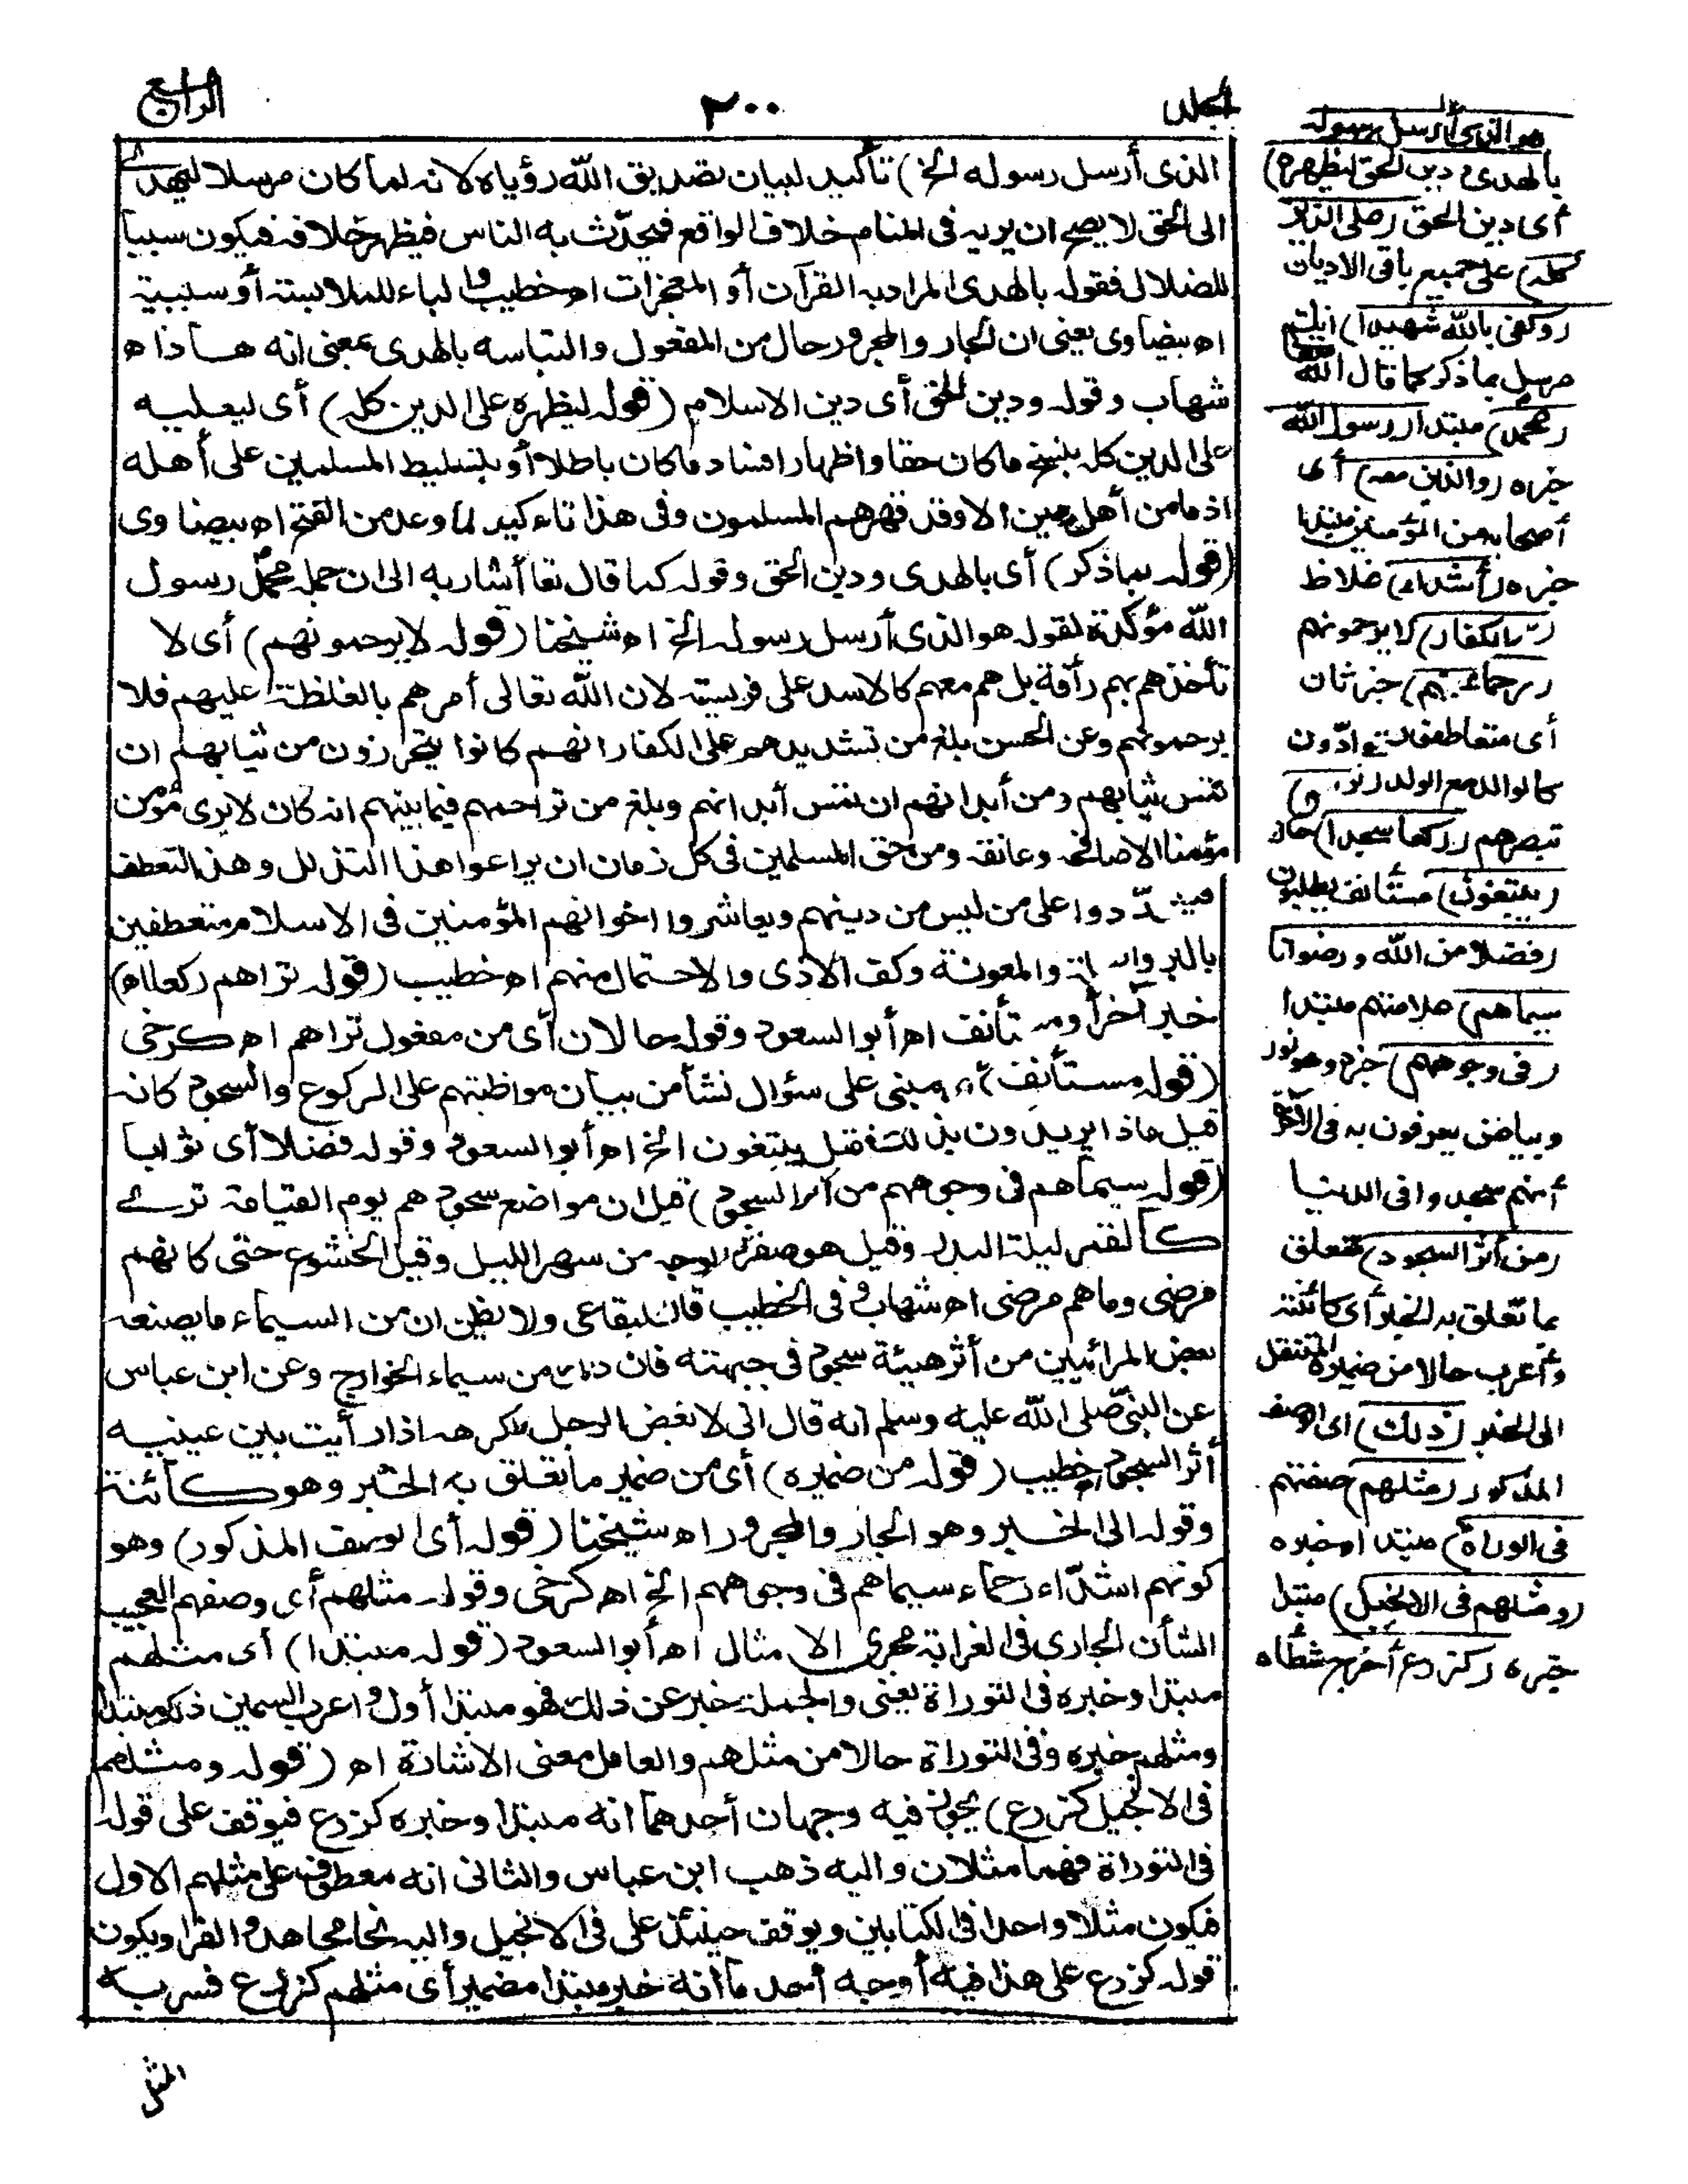 الجلد
٢٠٠
الرابع
الذى أرسل رسوله الخ) تأكيد لبيان تصديق الله رؤياه لانه لما كان مرسلا ليهدى
الى الحق لا يصح ان يريه فى المنام خلاف الواقع فيحدّث به الناس فيظهر خلافه فيكون سببا
للضلال فقوله بالهدى المراد به القرآن أو المعجزات اه خطيب والباء للملابسة أو سببية
اه بيضاوى يعنى ان الجار والمجرور حال من المفعول والتباسه بالهدى بمعنى انه هاد اه
شهاب وقوله ودين الحق أى دين الاسلام (قوله ليظهره على الدين كله) أى ليعليه
على الدين كله بنسخ ما كان حقا واظهار افساد ما كان باطلا أو بتسليط المسلمين على أهله
اذ ما من أهل دين الا وقد قهرهم المسلمون وفى هذا تاءكيد لما وعد من الفتح اه بيضاوى
(قوله بما ذكر) أى بالهدى ودين الحق وقوله كما قال تعا أشار به الى ان جملة محمد رسول
الله مؤكدة لقوله هو الذى أرسل رسوله الخ اه شيخنا (قوله لا يرحمونهم) أى لا
تأخذهم بهم رأفة بل هم معهم كالاسد على فريسته لان الله تعالى أمرهم بالغلظة عليهم فلا
يرحمونهم وعن الحسن بلغ من تشديدهم على الكفار انهم كانوا يتحرزون من ثيابهم ان
تمس ثيابهم ومن أبدانهم ان تمس أبدانهم وبلغ من تراحمهم فيما بينهم انه كان لا يرى مؤمن
مؤمنا الا صافحه وعانقه ومن حق المسلمين فى كل زمان ان يراعوا هذا التذلل وهذا التعطف
فيشدّدوا على من ليس من دينهم ويعاشروا اخوانهم المؤمنين فى الاسلام متعطفين
بالبر والمعونة وكف الاذى والاحتمال منهم اه خطيب (قوله تراهم ركعا اه)
خبر آخر أو مستأنف اه أبو السعود وقوله حالان أى من مفعول تراهم اه كرخى
(قوله مستأنف) مبنى على سؤال نشأ من بيان مواظبتهم على الركوع والسجود كانه
قيل ماذا يريدون بذلك فقيل يبتغون الخ اه أبو السعود وقوله فضلا أى ثوابا
(قوله سيماهم فى وجوههم من أثر السجود) قيل ان مواضع سجودهم يوم القيامة ترى
كالقمر ليلة البدر وقيل هو صفرة الوجه من سهر الليل وقيل الخشوع حتى كانهم
مرضى وما هم مرضى اه شهاب وفى الخطيب قال البقاعى ولا يظن ان من السيماء ما يصنعه
بعض المرائيين من أثر هيئة سجود فى جبهته فان ذلك من سيماء الخوارج وعن ابن عباس
عن النبىّ صلى الله عليه وسلم انه قال انى لا بغض الرجل وأكرهه اذا رأيت بين عينيه
أثر السجود اه خطيب (قوله من ضميره) أى من ضمير ما تعلق به الخبر وهو كائنة
وقوله الى الخبر وهو الجار والمجرور اه شيخنا (قوله أى الوصف المذكور) وهو
كونهم اشدّاء رحماء سيماهم فى وجوههم الخ اه كرخى وقوله مثلهم أى وصفهم العجيب
الشأن الجارى فى الغرابة مجرى الامثال اه أبو السعود (قوله مبتدا) أى مثلهم
مبتدا وخبره فى التوراة يعنى والجملة خبر عن ذلك فهو مبتدا أول واعرب السمين ذلك مبتدا
ومثلهم خبره وفى التوراة حالا من مثلهم والعامل معنى الاشارة اه (قوله ومثلهم
فى الانجيل كزرع) يجوز فيه وجهان أحدهما انه مبتدا وخبره كزرع فيوقف على قوله
فى التوراة فهما مثلان واليه ذهب ابن عباس والثانى انه معطوف على مثلهم الاول
فيكون مثلا واحدا فى الكتابين ويوقف حينئذ على فى الانجيل واليه نحا مجاهد والفرا ويكون
قوله كزرع على هذا فيه أوجه أحدها انه خبر مبتدا مضمر أى مثلهم كزرع فسر به
المثل
هو الذى أرسل رسوله
بالهدى ودين الحق ليظهره)
أى دين الحق (على الدين
كله) على جميع باقى الاديان
(وكفى بالله شهيدا) انك
مرسل بما ذكر كما قال الله
(محمد) مبتدا (رسول الله)
خبره (والذين معه) أى
أصحابه من المؤمنين مبتدا
خبره (أشداء) غلاظ
(على الكفار) لا يرحمونهم
(رحماء بينهم) خبر ثان
أى متعاطفون متوادّون
كالوالد مع الولد (تراهم)
تبصرهم (ركعا سجدا) حالان
(يبتغون) مستأنف يطلبون
(فضلا من الله ورضوانا
سيماهم) علامتهم مبتدا
(فى وجوههم) خبره وهو نور
وبياض يعرفون به فى الآخرة
أنهم سجدوا فى الدنيا
(من أثر السجود) متعلق
بما تعلق به الخبر أى كائنة
وأعرب حالا من ضميره المنتقل
الى الخبر (ذلك) اى الوصف
المذكور (مثلهم) صفتهم
فى التوراة) مبتدا وخبره
(ومثلهم فى الانجيل) مبتدا
خبره (كزرع أخرج شطأه